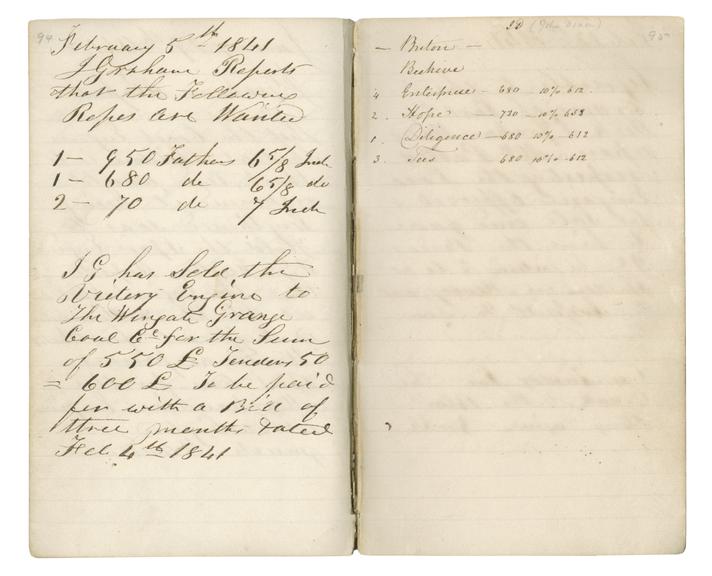 94
February 5th 1841
J Graham Reports
that the Following
Ropes are Wanted
1 - 950 Fathoms 6 5/8 Inch
1 - 680 do 6 5/8 do
2 - 70 do 7 Inch
J G has Sold the
Victory Engine to
The Wingate Grange
Coal Co for the Sum
of 550 £ Tenders 50
= 600 £ To be paid
for with a Bill of
three months dated
Feb 4th 1841
95
JD (John Dixon)
- Briton -
Beehive
4 Enterprise - 680 - 10% 612.
2. Hope - 730 - 10%
1. Diligence - 680 10% - 612
3. Tees 680 10% - 612